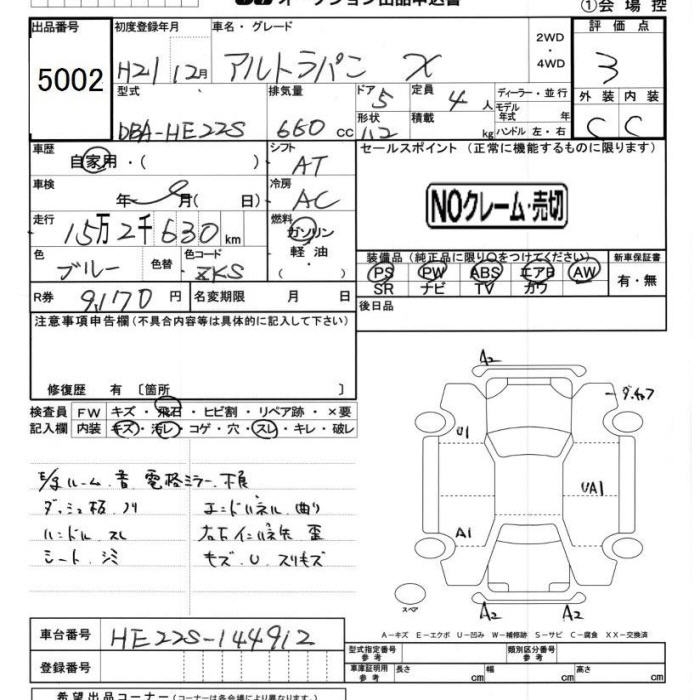 ①会場控
出品番号
5002
初度登録年月
H21 12月
車名・グレード
アルトラパン X
2WD
・
4WD
評価点
3
外装 内装
C C
型式
DBA-HE22S
排気量
660 cc
ドア 5
定員 4 人
形状
積載 kg
ディーラー・並行
モデル年式 年
ハンドル 左・右
車歴
自家用・( )
シフト
AT
セールスポイント (正常に機能するものに限ります)
NOクレーム・売切
車検
年 月( 日)
冷房
AC
走行
15万2千630km
燃料
ガソリン
軽油
・( )
色
ブルー
色替
色コード
ZKS
装備品(純正品に限り○をつけてください)
PS PW ABS エアB AW
SR ナビ TV カワ
新車保証書
有・無
R券
9,170 円
名変期限 月 日
後日品
注意事項申告欄(不具合内容等は具体的に記入して下さい)
修復歴 有 〔箇所 〕
検査員
記入欄
FW キズ・飛石・ヒビ割・リペア跡・×要
内装 キズ・汚レ・コゲ・穴・スレ・キレ・破レ
ダッシュ板 ノリ
ハンドル スレ
シート シミ
エンドパネル 曲り
キズ・U・スリキズ
A2
U1
UA1
A1
A2
A2
スペア
A-キズ E-エクボ U-凹み W-補修跡 S-サビ C-腐食 XX-交換済
車台番号
HE22S-144912
登録番号
型式指定番号
参考
類別区分番号
参考
車庫証明用
参考
長さ cm
幅 cm
高さ cm
希望出品コーナー(コーナーは各会場により異なります)